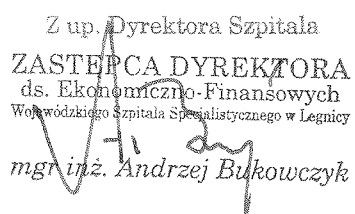 Z up. Dyrektora Szpitala
ZASTĘPCA DYREKTORA
ds. Ekonomiczno-Finansowych
Wojewódzkiego Szpitala Specjalistycznego w Legnicy
mgr inż. Andrzej Bukowczyk